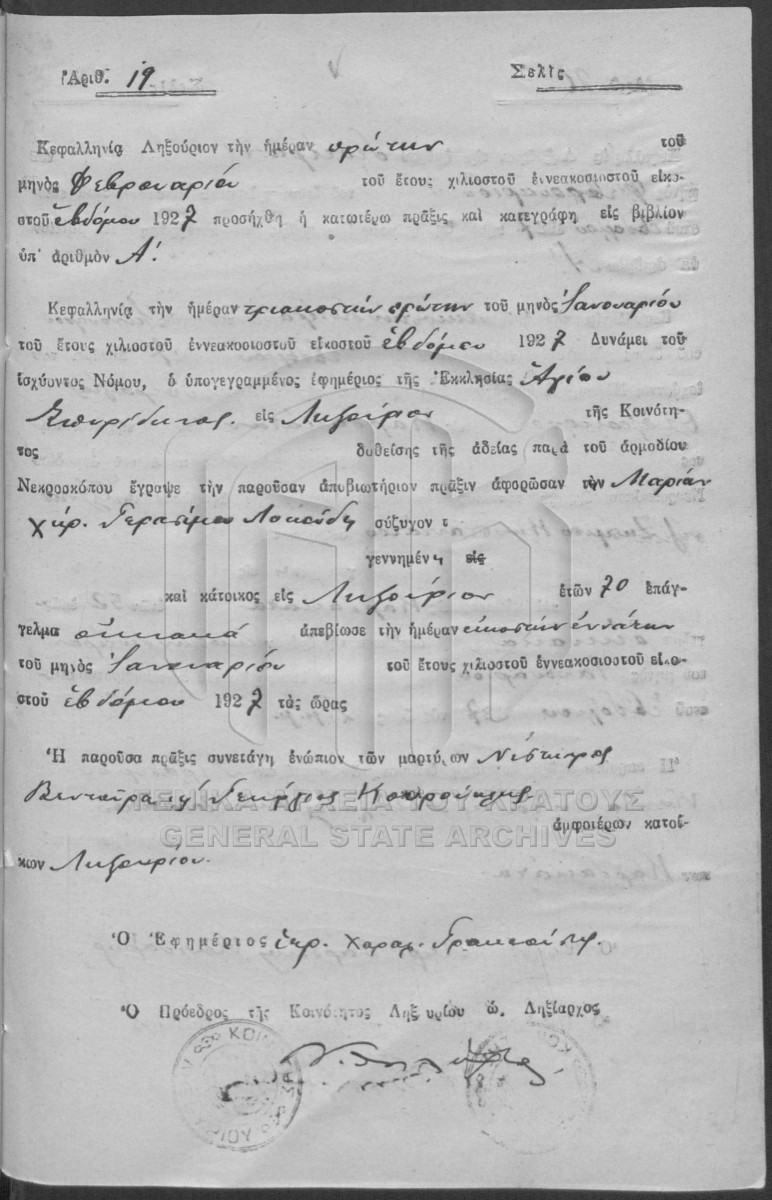 Ἀριθ. 19 Σελὶς
Κεφαλληνίᾳ Ληξούριον τὴν ἡμέραν πρώτην τοῦ
μηνὸς Φεβρουαρίου τοῦ ἔτους χιλιοστοῦ ἐννεακοσιοστοῦ εἰκο-
στοῦ ἑβδόμου 1927 προσήχθη ἡ κατωτέρω πρᾶξις καὶ κατεγράφη εἰς βιβλίον
ὑπ' ἀριθμὸν Α'.
Κεφαλληνίᾳ τὴν ἡμέραν τριακοστήν πρώτην τοῦ μηνὸς Ἰανουαρίου
τοῦ ἔτους χιλιοστοῦ ἐννεακοσιοστοῦ εἰκοστοῦ ἑβδόμου 1927 Δυνάμει τοῦ
ἰσχύοντος Νόμου, ὁ ὑπογεγραμμένος ἐφημέριος τῆς Ἐκκλησίας Ἁγίου
Σπυρίδωνος. εἰς Ληξούριον τῆς Κοινότη-
τος δοθείσης τῆς ἀδείας παρὰ τοῦ ἁρμοδίου
Νεκροσκόπου ἔγραψε τὴν παροῦσαν ἀποβιωτήριον πρᾶξιν ἀφορῶσαν τὴν Μαρίαν
χήρ. Γερασίμου σύζυγον τ
γεννημένη εἰς
καὶ κάτοικος εἰς Ληξούριον ἐτῶν 70 ἐπάγ-
γελμα οἰκιακά ἀπεβίωσε τὴν ἡμέραν εἰκοστήν ἐννάτην
τοῦ μηνὸς Ἰανουαρίου τοῦ ἔτους χιλιοστοῦ ἐννεακοσιοστοῦ εἰκο-
στοῦ ἑβδόμου 1927 τὰς ὥρας
Ἡ παροῦσα πρᾶξις συνετάγη ἐνώπιον τῶν μαρτύρων
Γεώργιος
ΓΕΝΙΚΑ ΑΡΧΕΙΑ ΤΟΥ ΚΡΑΤΟΥΣ
GENERAL STATE ARCHIVES
ἀμφοτέρων κατοί-
κων Ληξουρίου.
Ὁ Ἐφημέριος Χαραλ.
Ὁ Πρόεδρος τῆς Κοινότητος Ληξουρίου ὡς Ληξίαρχος